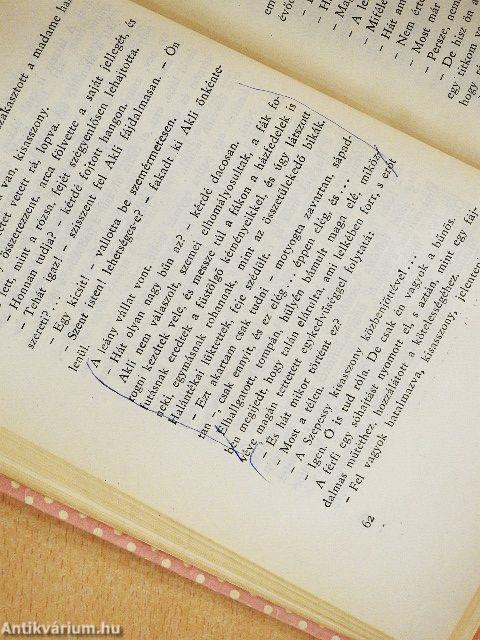 szakasztott a madame ha
van, kisasszony.
etet vetett rá, lopva.
összerezzent, arca fölvette a saját jellegét, és
lett, mint a rózsa, fejét szégyenlősen lehajtotta.
– Honnan tudja? – kérdé fojtott hangon.
– Tehát igaz! – szisszent fel Akli fájdalmasan. – Ön
szeret?
– Egy kicsit! – vallotta be szemérmetesen.
– Szent Isten! lehetséges-e? – fakadt ki Akli önkénte-
lenül.
A leány vállat vont.
– Hát olyan nagy bűn az? – kérdé dacosan.
Akli nem válaszolt, szemei elhomályosultak, a fák fo-
rogni kezdtek vele, és messze túl a fákon a házfedelek is
futásnak eredtek a füstölgő kéményeikkel, és úgy látszott
neki, egymásnak rohannak, mint az összetülekedő bikák.
Halántékai lüktettek, feje szédült.
– Ezt akartam csak tudni – motyogta zavartan, sápad-
tan –, csak ennyit, és ez elég... éppen elég, és...
elhallgatott, tompán, hülyén bámult maga elé, miköz-
ben megijedt, hogy talán elárulta, ami lelkében forr, s erőt
véve magán tettetett egykedvűséggel folytatá:
– És hát mikor történt ez?
– Most a télen.
– A Szepessy kisasszony közbenjöttével...
– Igen. Ő is tud róla. De csak én vagyok a bűnös.
A férfi egy sóhajtást nyomott el, s aztán, mint egy fáj-
dalmas műtéthez, hozzálátott a kötelességéhez.
– Fel vagyok hatalmazva, kisasszony, jelenten
62
évőd
– H
– Ma
– A le
– Miféle
– Hát ann
– Nem érte
– Most már
– Persze, nem
– De hisz ön a
egy titkom va
hogy rá
Antikvárium.hu